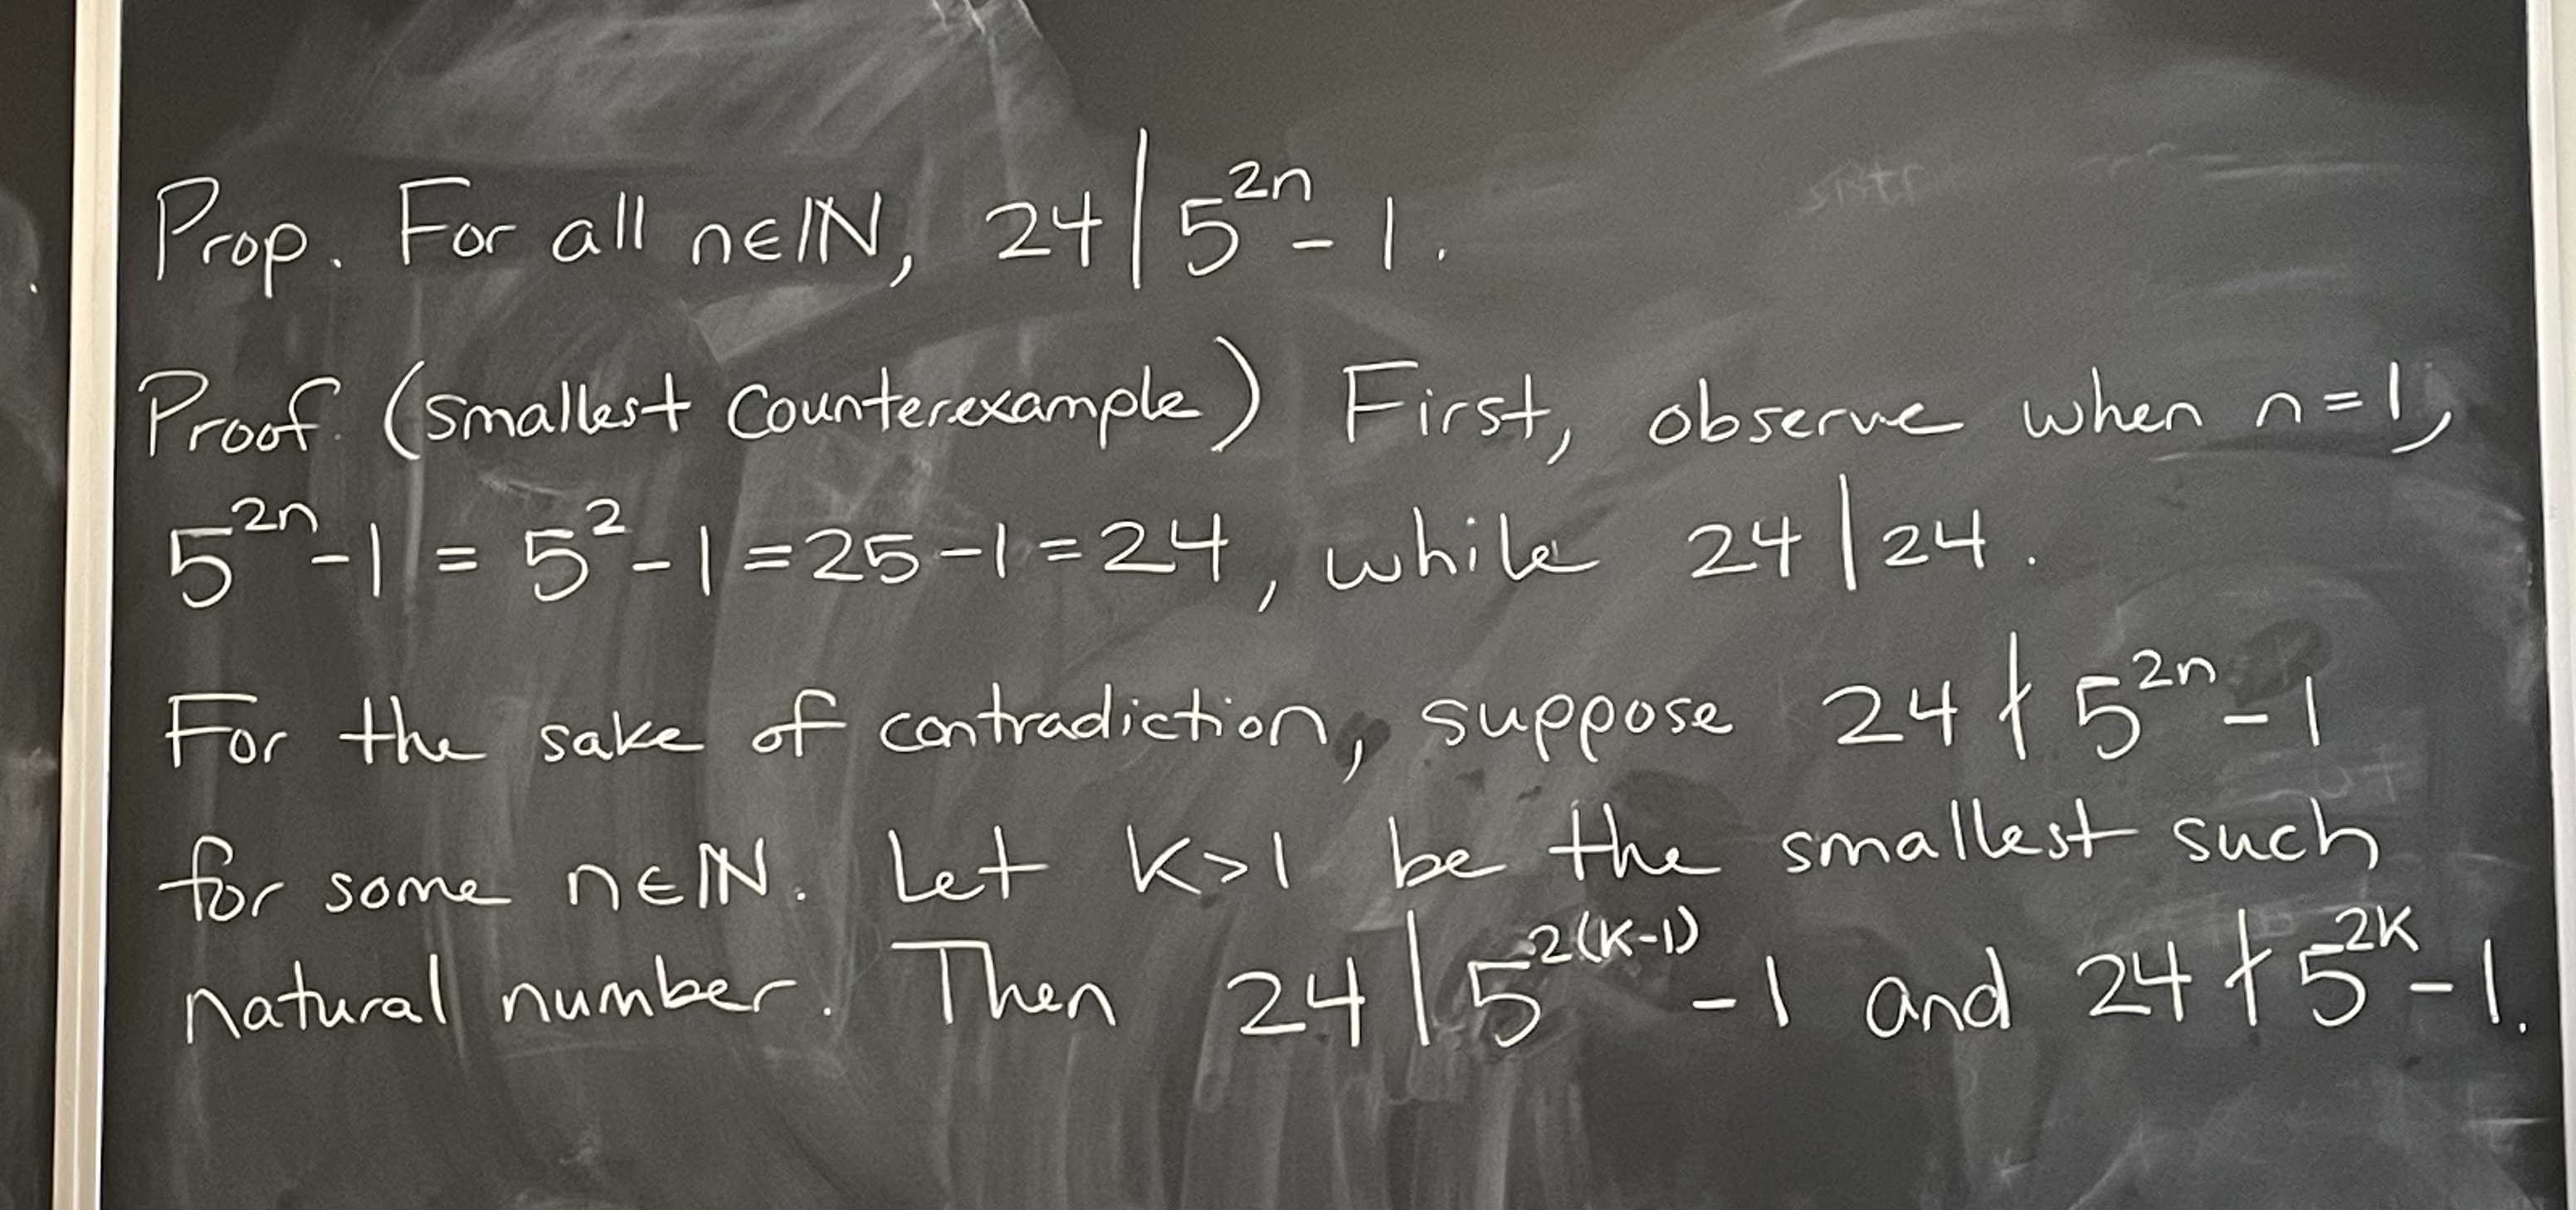 Prop. For all n∈ℕ, 24 | 5²ⁿ - 1.
Proof. (Smallest Counterexample) First, observe when n=1,
5²ⁿ - 1 = 5² - 1 = 25 - 1 = 24, while 24 | 24.
For the sake of contradiction, suppose 24 ∤ 5²ⁿ - 1
for some n∈ℕ. Let k>1 be the smallest such
natural number. Then 24 | 5²⁽ᵏ⁻¹⁾ - 1 and 24 ∤ 5²ᵏ - 1.